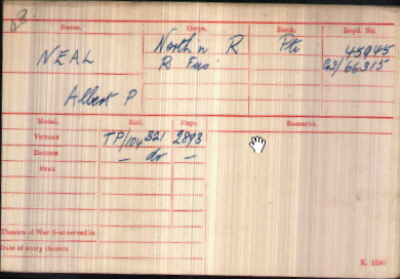 Name. Corps. Rank. Regtl. No.
NEAL North'n R Pte 45945
R Fus GS/66315
Albert P
Medal. Roll. Page. Remarks.
Victory TP/104 B21 2893
British — do —
Star
Theatre of War first served in
Date of entry therein
K. 1380